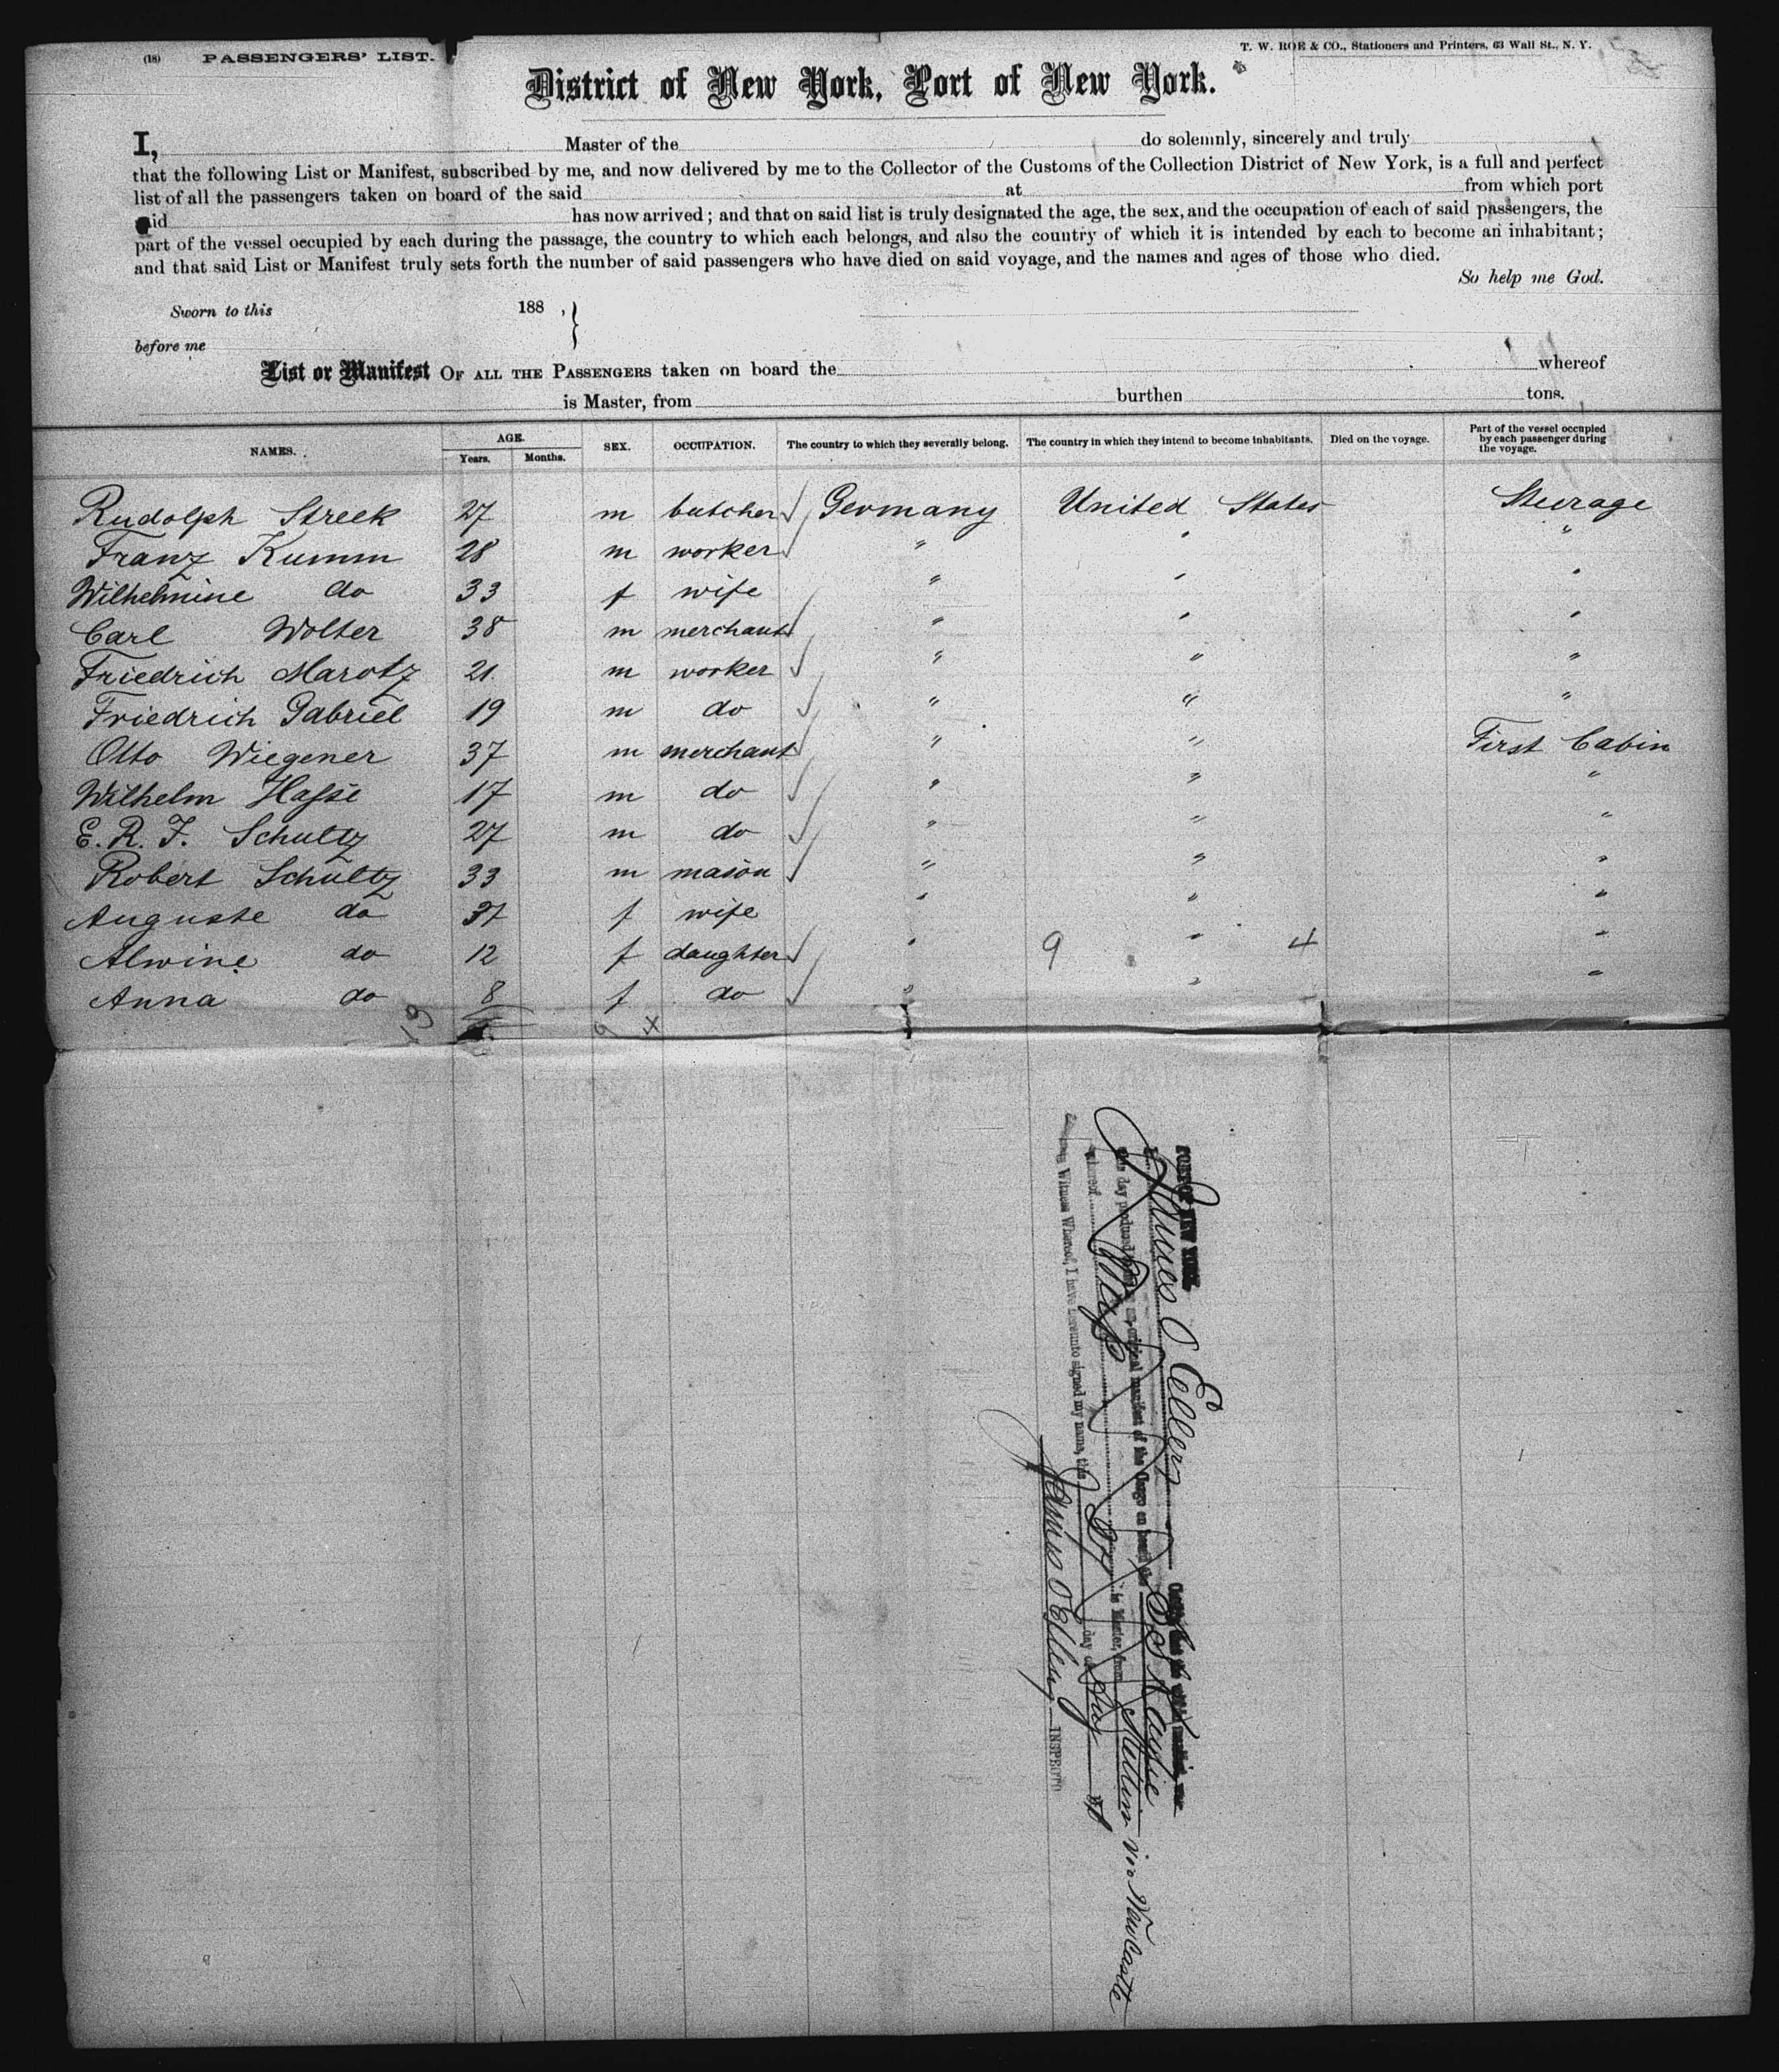 (18) PASSENGERS' LIST.
T. W. ROE & CO., Stationers and Printers, 63 Wall St., N. Y.
District of New York, Port of New York.
I, Master of the do solemnly, sincerely and truly
that the following List or Manifest, subscribed by me, and now delivered by me to the Collector of the Customs of the Collection District of New York, is a full and perfect
list of all the passengers taken on board of the said at from which port
said has now arrived; and that on said list is truly designated the age, the sex, and the occupation of each of said passengers, the
part of the vessel occupied by each during the passage, the country to which each belongs, and also the country of which it is intended by each to become an inhabitant;
and that said List or Manifest truly sets forth the number of said passengers who have died on said voyage, and the names and ages of those who died.
So help me God.
Sworn to this 188 ,
before me
List or Manifest OF ALL THE PASSENGERS taken on board the whereof
is Master, from burthen tons.
NAMES. AGE. Years. Months. SEX. OCCUPATION. The country to which they severally belong. The country in which they intend to become inhabitants. Died on the voyage. Part of the vessel occupied by each passenger during the voyage.
Rudolph Streek 27 m butcher Germany United States Steerage
Franz Kumm 28 m worker " " "
Wilhelmine do 33 f wife " " "
Carl Wolter 38 m merchant " " "
Friedrich Marotz 21. m worker " " "
Friedrich Gabriel 19 m do " " "
Otto Wiegener 37 m merchant " " First Cabin
Wilhelm Hasse 17 m do " " "
E. R. F. Schultz 27 m do " " "
Robert Schultz 33 m mason " " "
Auguste do 37 f wife " " "
Alwine do 12 f daughter " 9 " 4 "
Anna do 8 f do " " "
13 9 4
PORT OF NEW YORK.
James O Ellery Certify that the within manifest, was
this day produced to me as an original manifest of the Cargo on board the SS
whereof is Master, from Stettin via New Castle
In Witness Whereof, I have hereunto signed my name, this day of Aug
James O Ellery INSPECTO